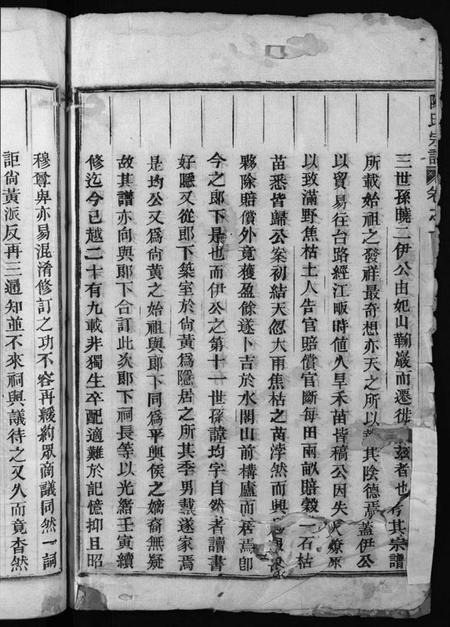 陳氏宗譜 卷之
三世孫曉二伊公由妃山 巖而遷徙 茲者也 其宗譜
所載始祖之發祥最奇想亦天之所以 其陰德焉蓋伊公
以貿易往台路經江畈時值久旱禾苗皆稿公因失火燎來
以致滿野焦枯土人告官賠償官斷每田南畝賠穀一石枯
苗悉皆歸公案初結天忽大雨焦枯之苗浡然而興
夥除賠償外竟獲盈餘遂卜吉於水閣山前構廬而居焉卽
今之郞下是也而伊公之第十一世孫諱均字自然者讀書
好隱又從郞下築室於尙黃為隱居之所其季男載遂家焉
是均公又為尙黃之始祖與郞下同為平輿侯之嫡裔無疑
故其譜亦向與郞下合訂此次郞下祠長等以光緒壬寅續
修迄今已越二十有九載非獨生卒配適難於記憶抑且昭
穆尊卑亦易混淆修訂之功不容再緩約眾商議同然一詞
詎尙黃派反再三通知並不來祠與議待之又久而竟杳然